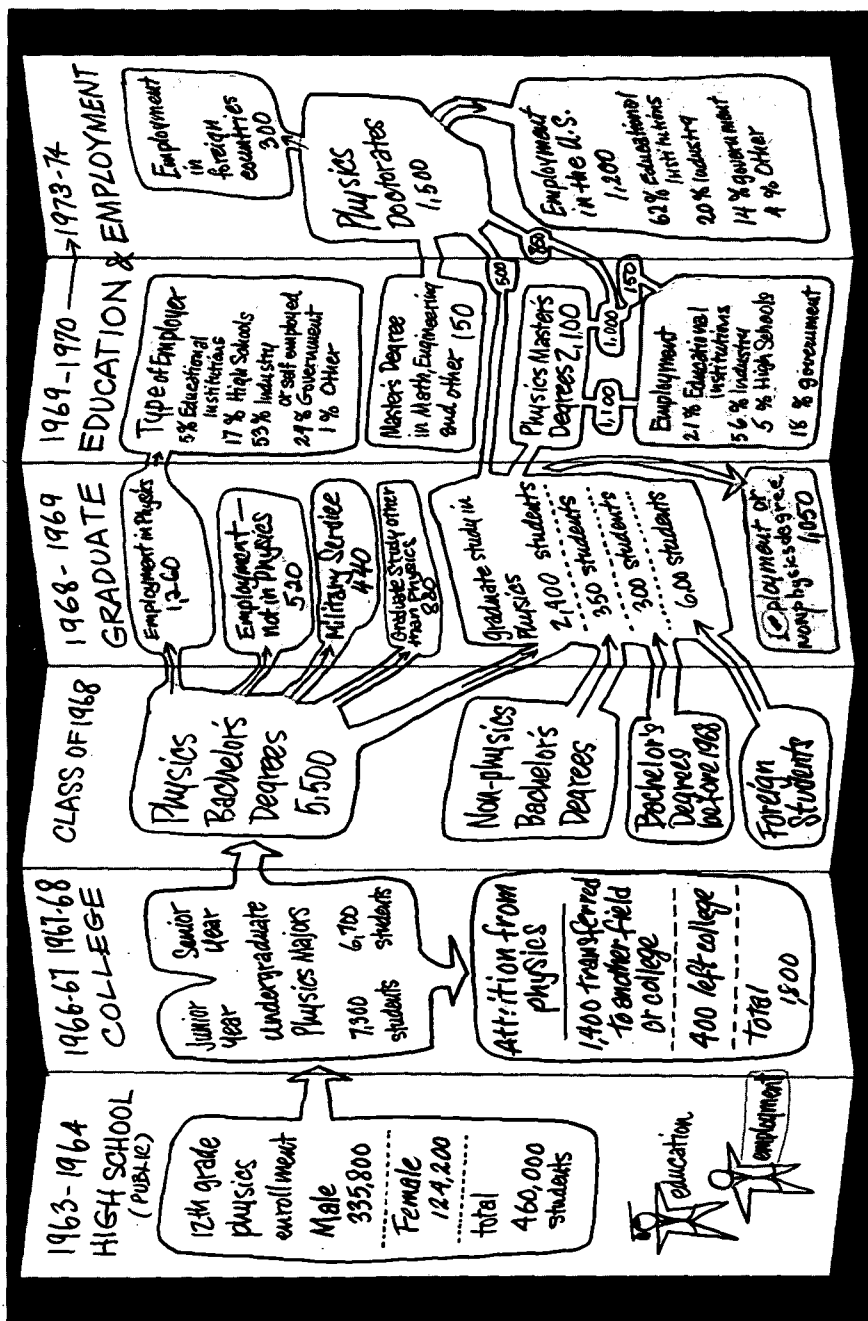 1963-1964
HIGH SCHOOL
(PUBLIC)
12th grade
physics
enrollment
Male
335,800
Female
124,200
total
460,000
students
education
employment
1966-67 1967-68
COLLEGE
Junior
Year
Senior
Year
Undergraduate
Physics Majors
7,300
students
6,700
students
Attrition from
physics
1,400 transferred
to another field
or college
400 left college
Total
1,800
CLASS OF 1968
Physics
Bachelor's
Degrees
5,500
Non-physics
Bachelor's
Degrees
Bachelor's
Degrees
before 1968
Foreign
Students
1968-1969
GRADUATE
Employment in Physics
1,260
Employment—
not in Physics
520
Military Service
440
Graduate Study other
than Physics
880
graduate study in
Physics
2,400 students
350 students
300 students
600 students
ployment or
nonphysics degree
1,050
1969-1970 → 1973-74
EDUCATION & EMPLOYMENT
Type of Employer
5% Educational
Institutions
17% High Schools
53% Industry
or self employed
24% Government
1% Other
Masters Degree
in Math, Engineering
and other 150
Physics Masters
Degrees 2,100
1,100
1,000
150
Employment
21% Educational
Institutions
56% Industry
5% High Schools
18% government
500
850
Employment
in
foreign
countries
300
Physics
Doctorates
1,500
Employment
in the U.S.
1,200
62% Educational
Institutions
20% Industry
14% government
4% Other